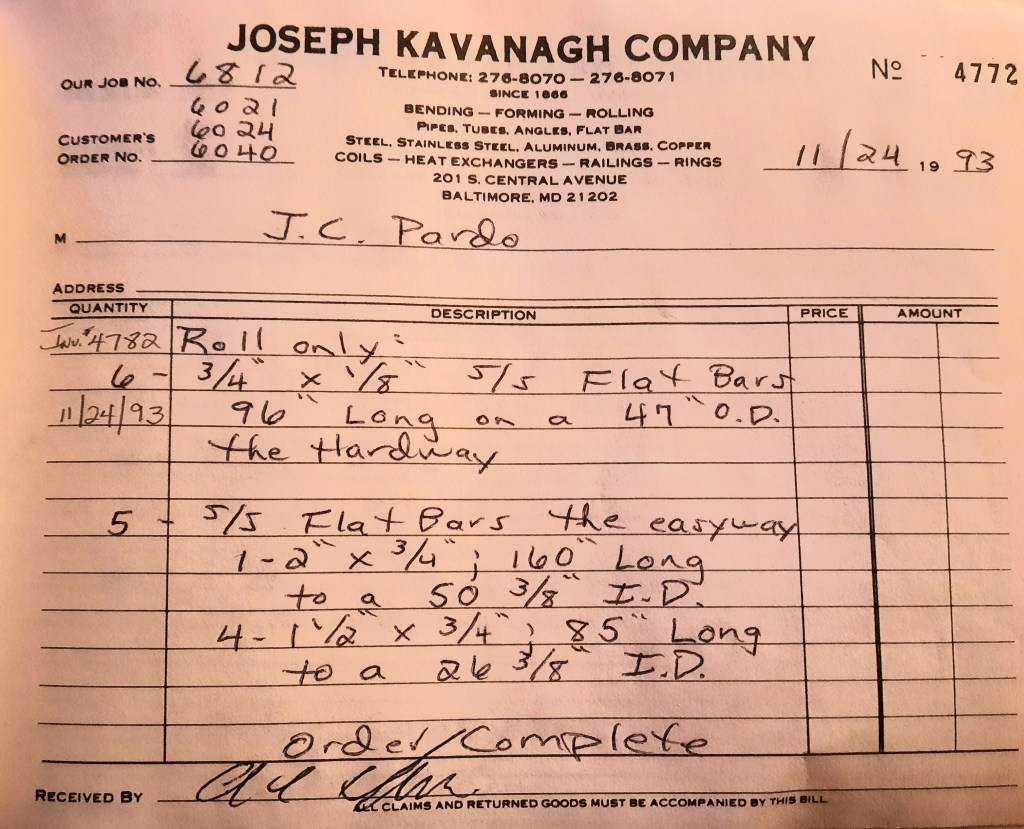 JOSEPH KAVANAGH COMPANY
TELEPHONE: 276-8070 — 276-8071
SINCE 1866
BENDING — FORMING — ROLLING
PIPES, TUBES, ANGLES, FLAT BAR
STEEL, STAINLESS STEEL, ALUMINUM, BRASS, COPPER
COILS — HEAT EXCHANGERS — RAILINGS — RINGS
201 S. CENTRAL AVENUE
BALTIMORE, MD 21202
No 4772
OUR JOB NO. 6812
6021
6024
CUSTOMER'S ORDER NO. 6040
11/24 19 93
M J.C. Pardo
ADDRESS
QUANTITY DESCRIPTION PRICE AMOUNT
Inv. #4782 Roll only:
6 - 3/4" x 1/8" S/S Flat Bars
11/24/93 96" Long on a 47" O.D.
the Hardway
5 - S/S Flat Bars the easyway
1 - 2" x 3/4"; 160" Long
to a 50 3/8" I.D.
4 - 1 1/2" x 3/4"; 85" Long
to a 26 3/8" I.D.
Order/Complete
RECEIVED BY
ALL CLAIMS AND RETURNED GOODS MUST BE ACCOMPANIED BY THIS BILL